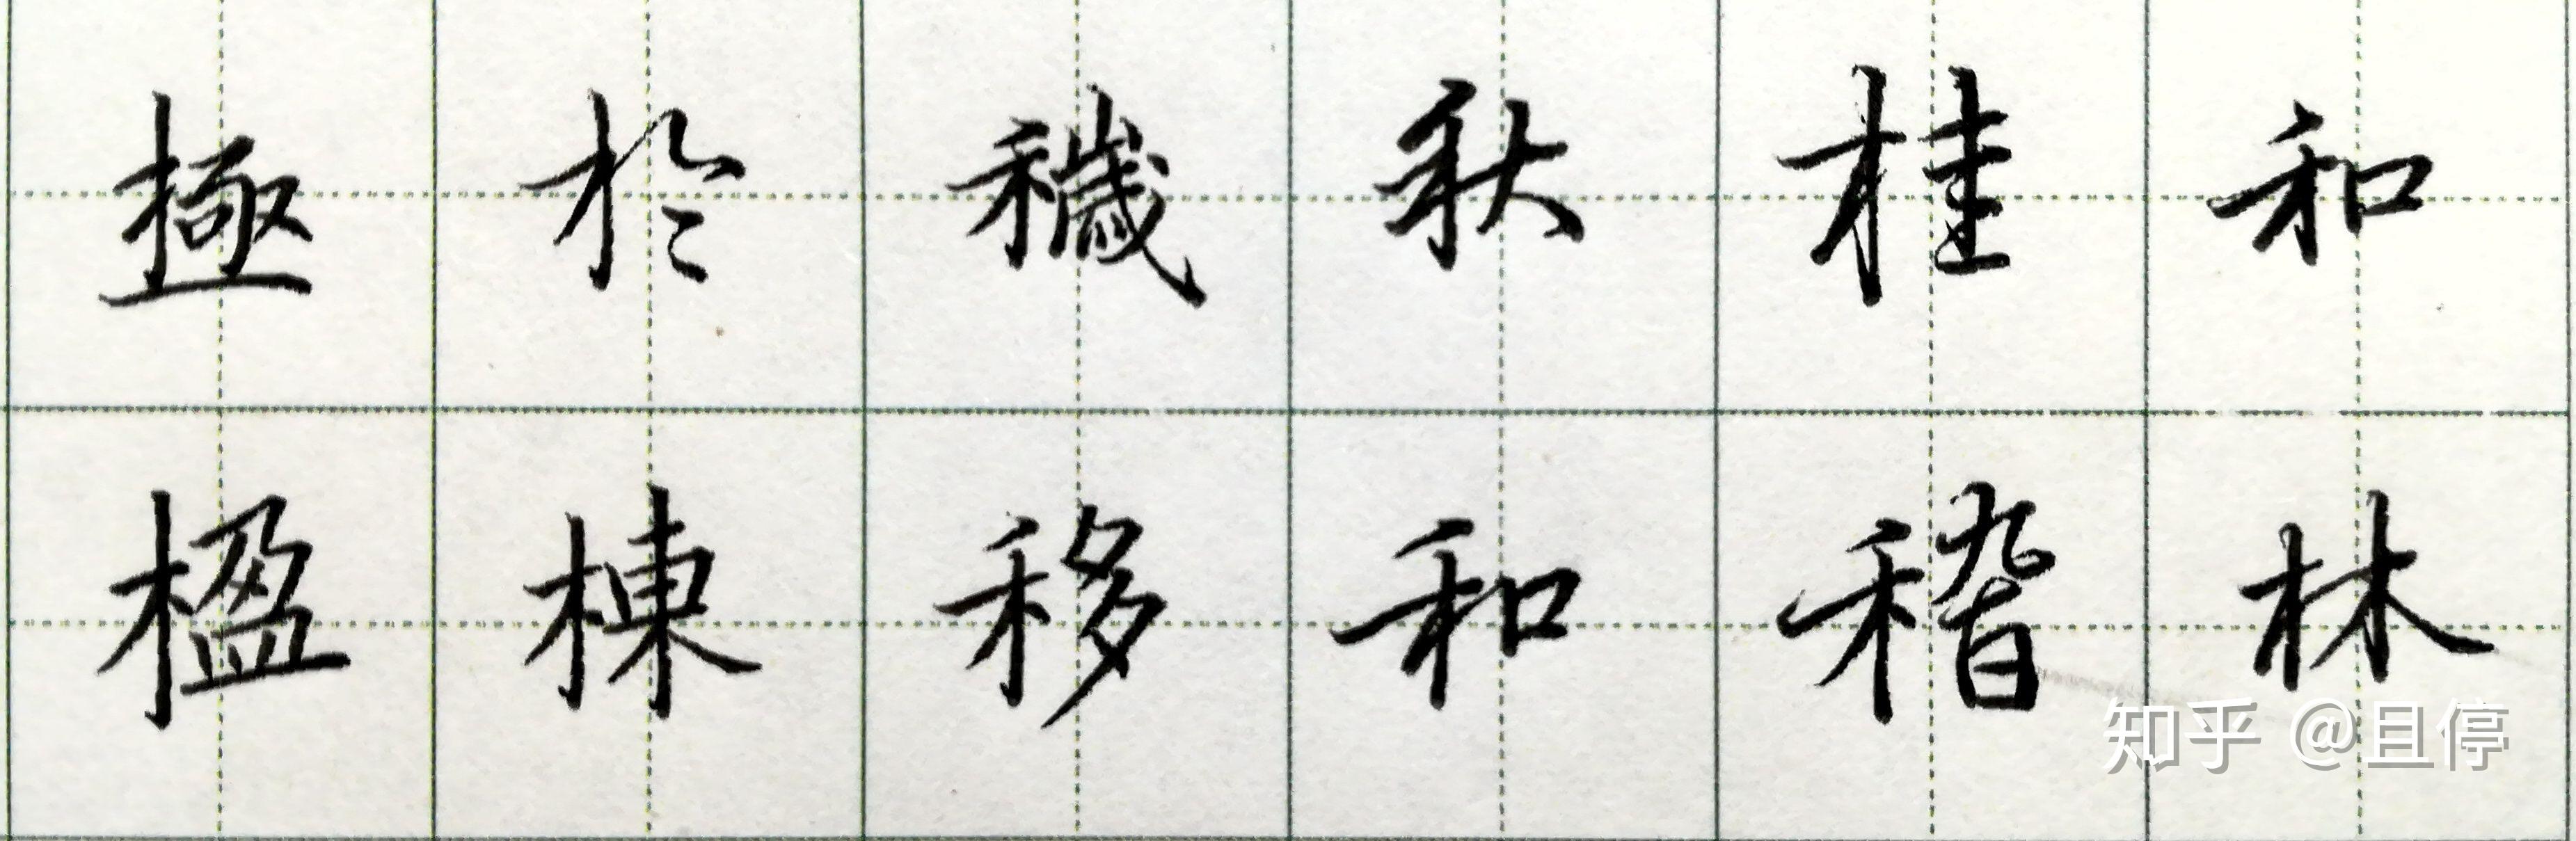 極於穢秋桂和
楹棟移和稽林
知乎 @且停